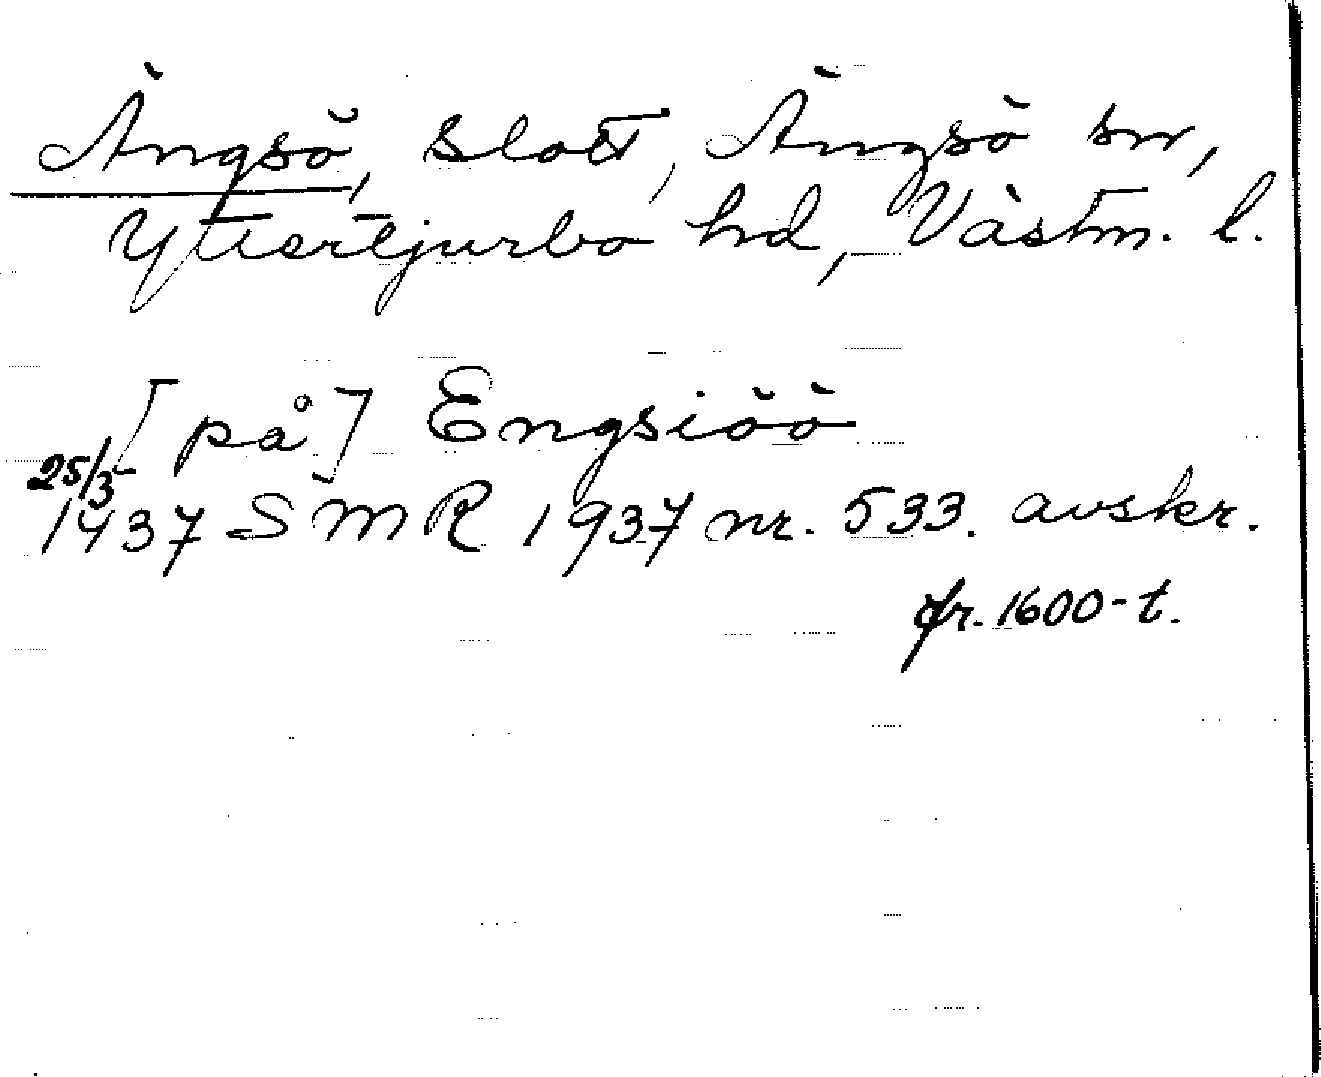 Ängsö, slott, Ängsö sn,
Yttertjurbo hd, Västm. l.
[på] Engsiöö
25/3
1437 SMR 1937 nr. 533. avskr.
fr. 1600-t.